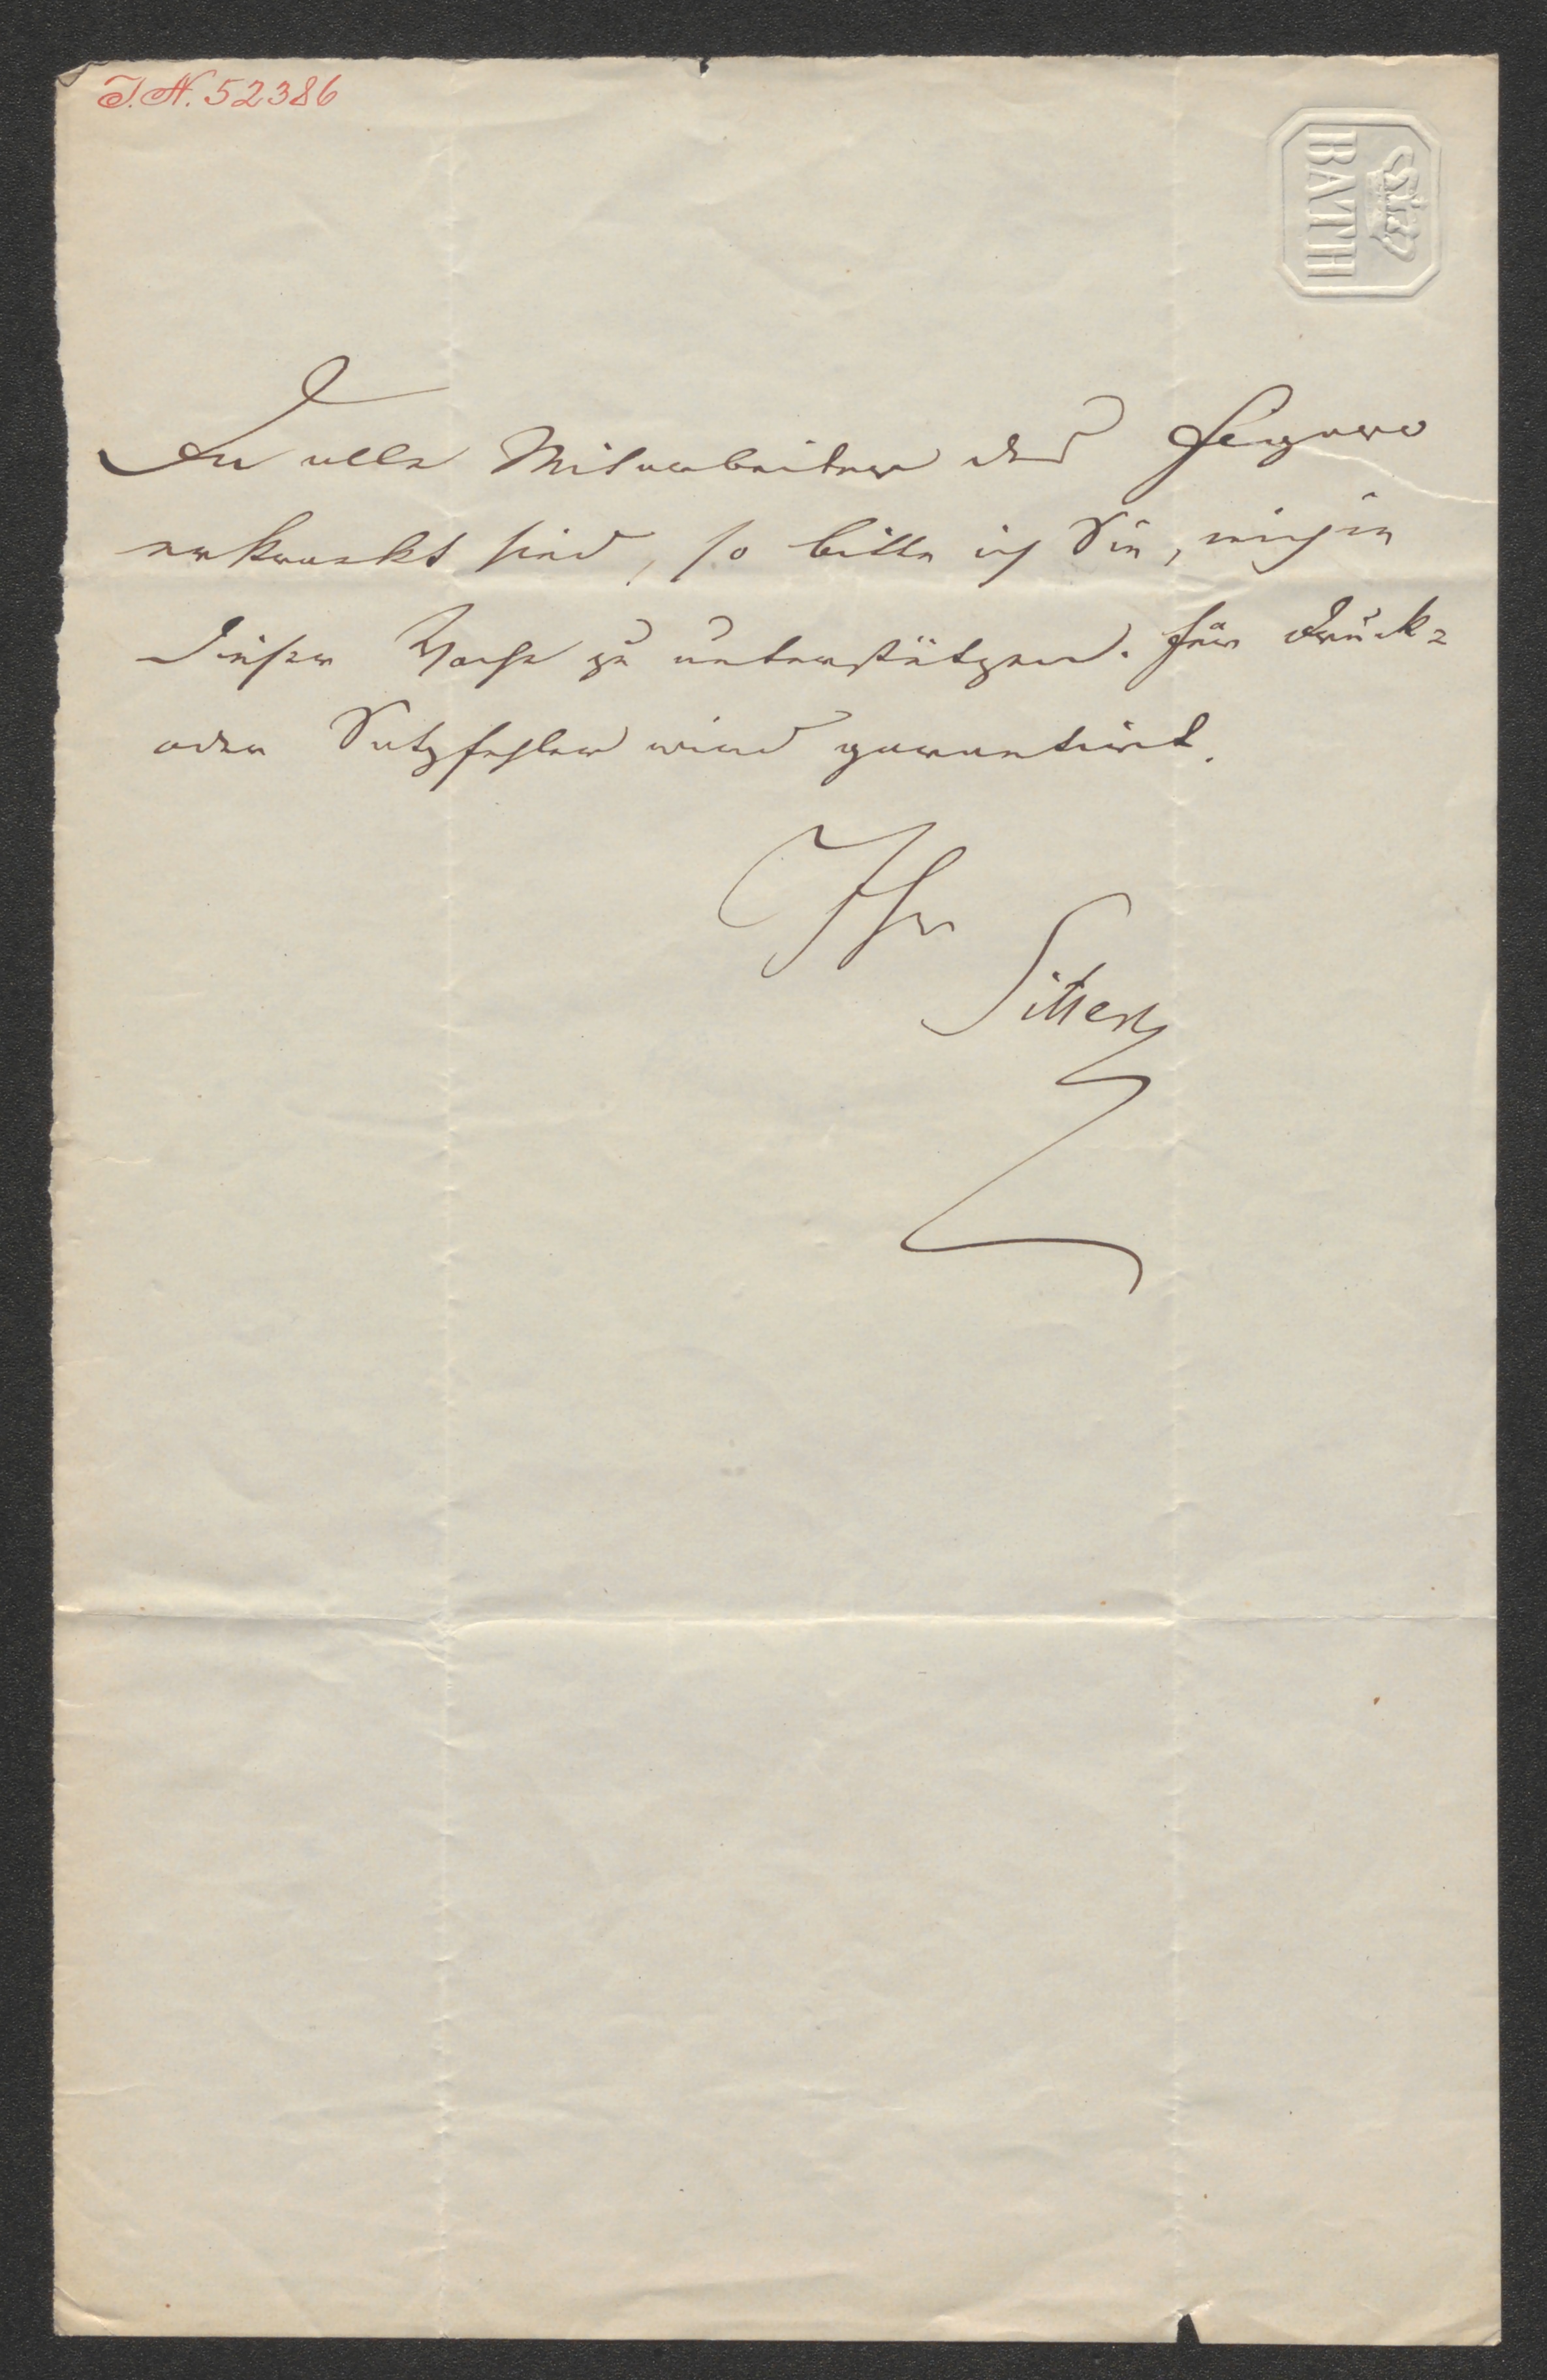 I.N. 52386
BATH
Da alle Mitarbeiter des Figaro
erkrankt sind, so bitte ich Sie, mich in
dieser Woche zu unterstützen. Für Druck-
oder Satzfehler wird garantirt.
Ihr
Sitter